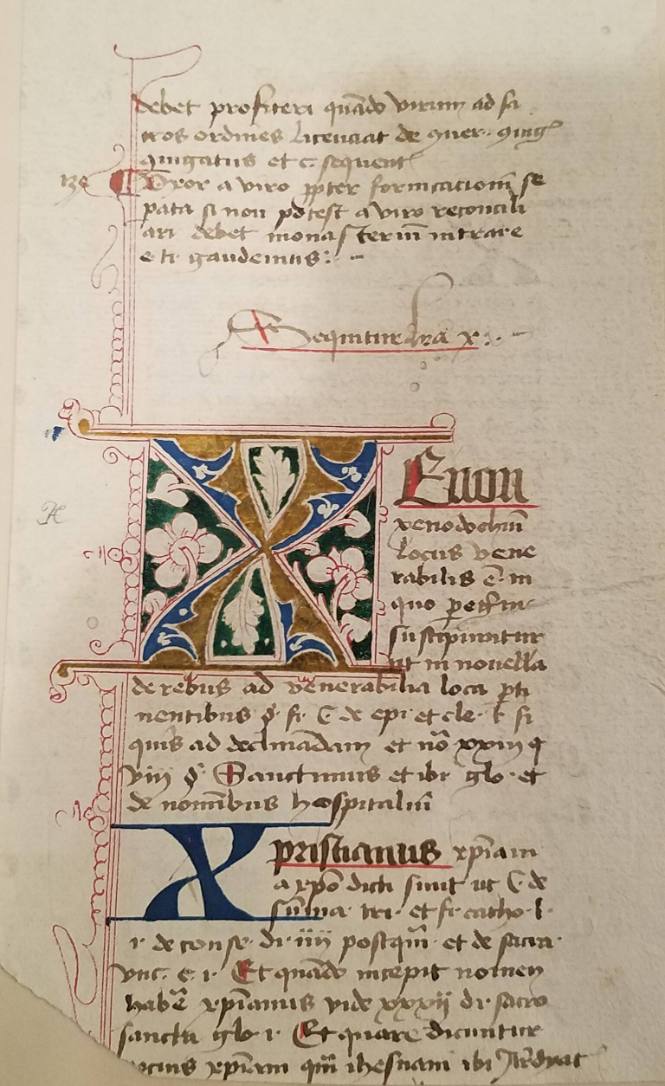 debet profiteri quādo virum ad sa
cros ordines licenciat de quer. 9iug
9iugatus et c. sequent
130 Uxor a viro ꝓpter fornicacionē se
pata si non potest a viro reconcili
ari debet monasteriū intrare
et gaudemus :
Sequitur lra x :
Xenon
xenodochiū
locus vene
rabilis ē in
quo peregrini
suscipiuntur
ut in novella
de rebus ad venerabilia loca ꝑti
nentibus § si C de epi et cle l si
quis ad declinādam et nō xxiii q
viii § Sanctimus et ibi glo. et
de nominibus hospitaliū
Xpristianus xpiani
a xpo dicti sunt ut C de
summa tri. et fi catho. l.
i. de conse. di. iiii postqm̄. et de sacra
unc. c. i. Et quādo incepit nomen
habē xpianus vide xxxii di. sacro
sancta glo i. Et quare dicuntur
pocius xpiani qm̄ ihesuani ibi